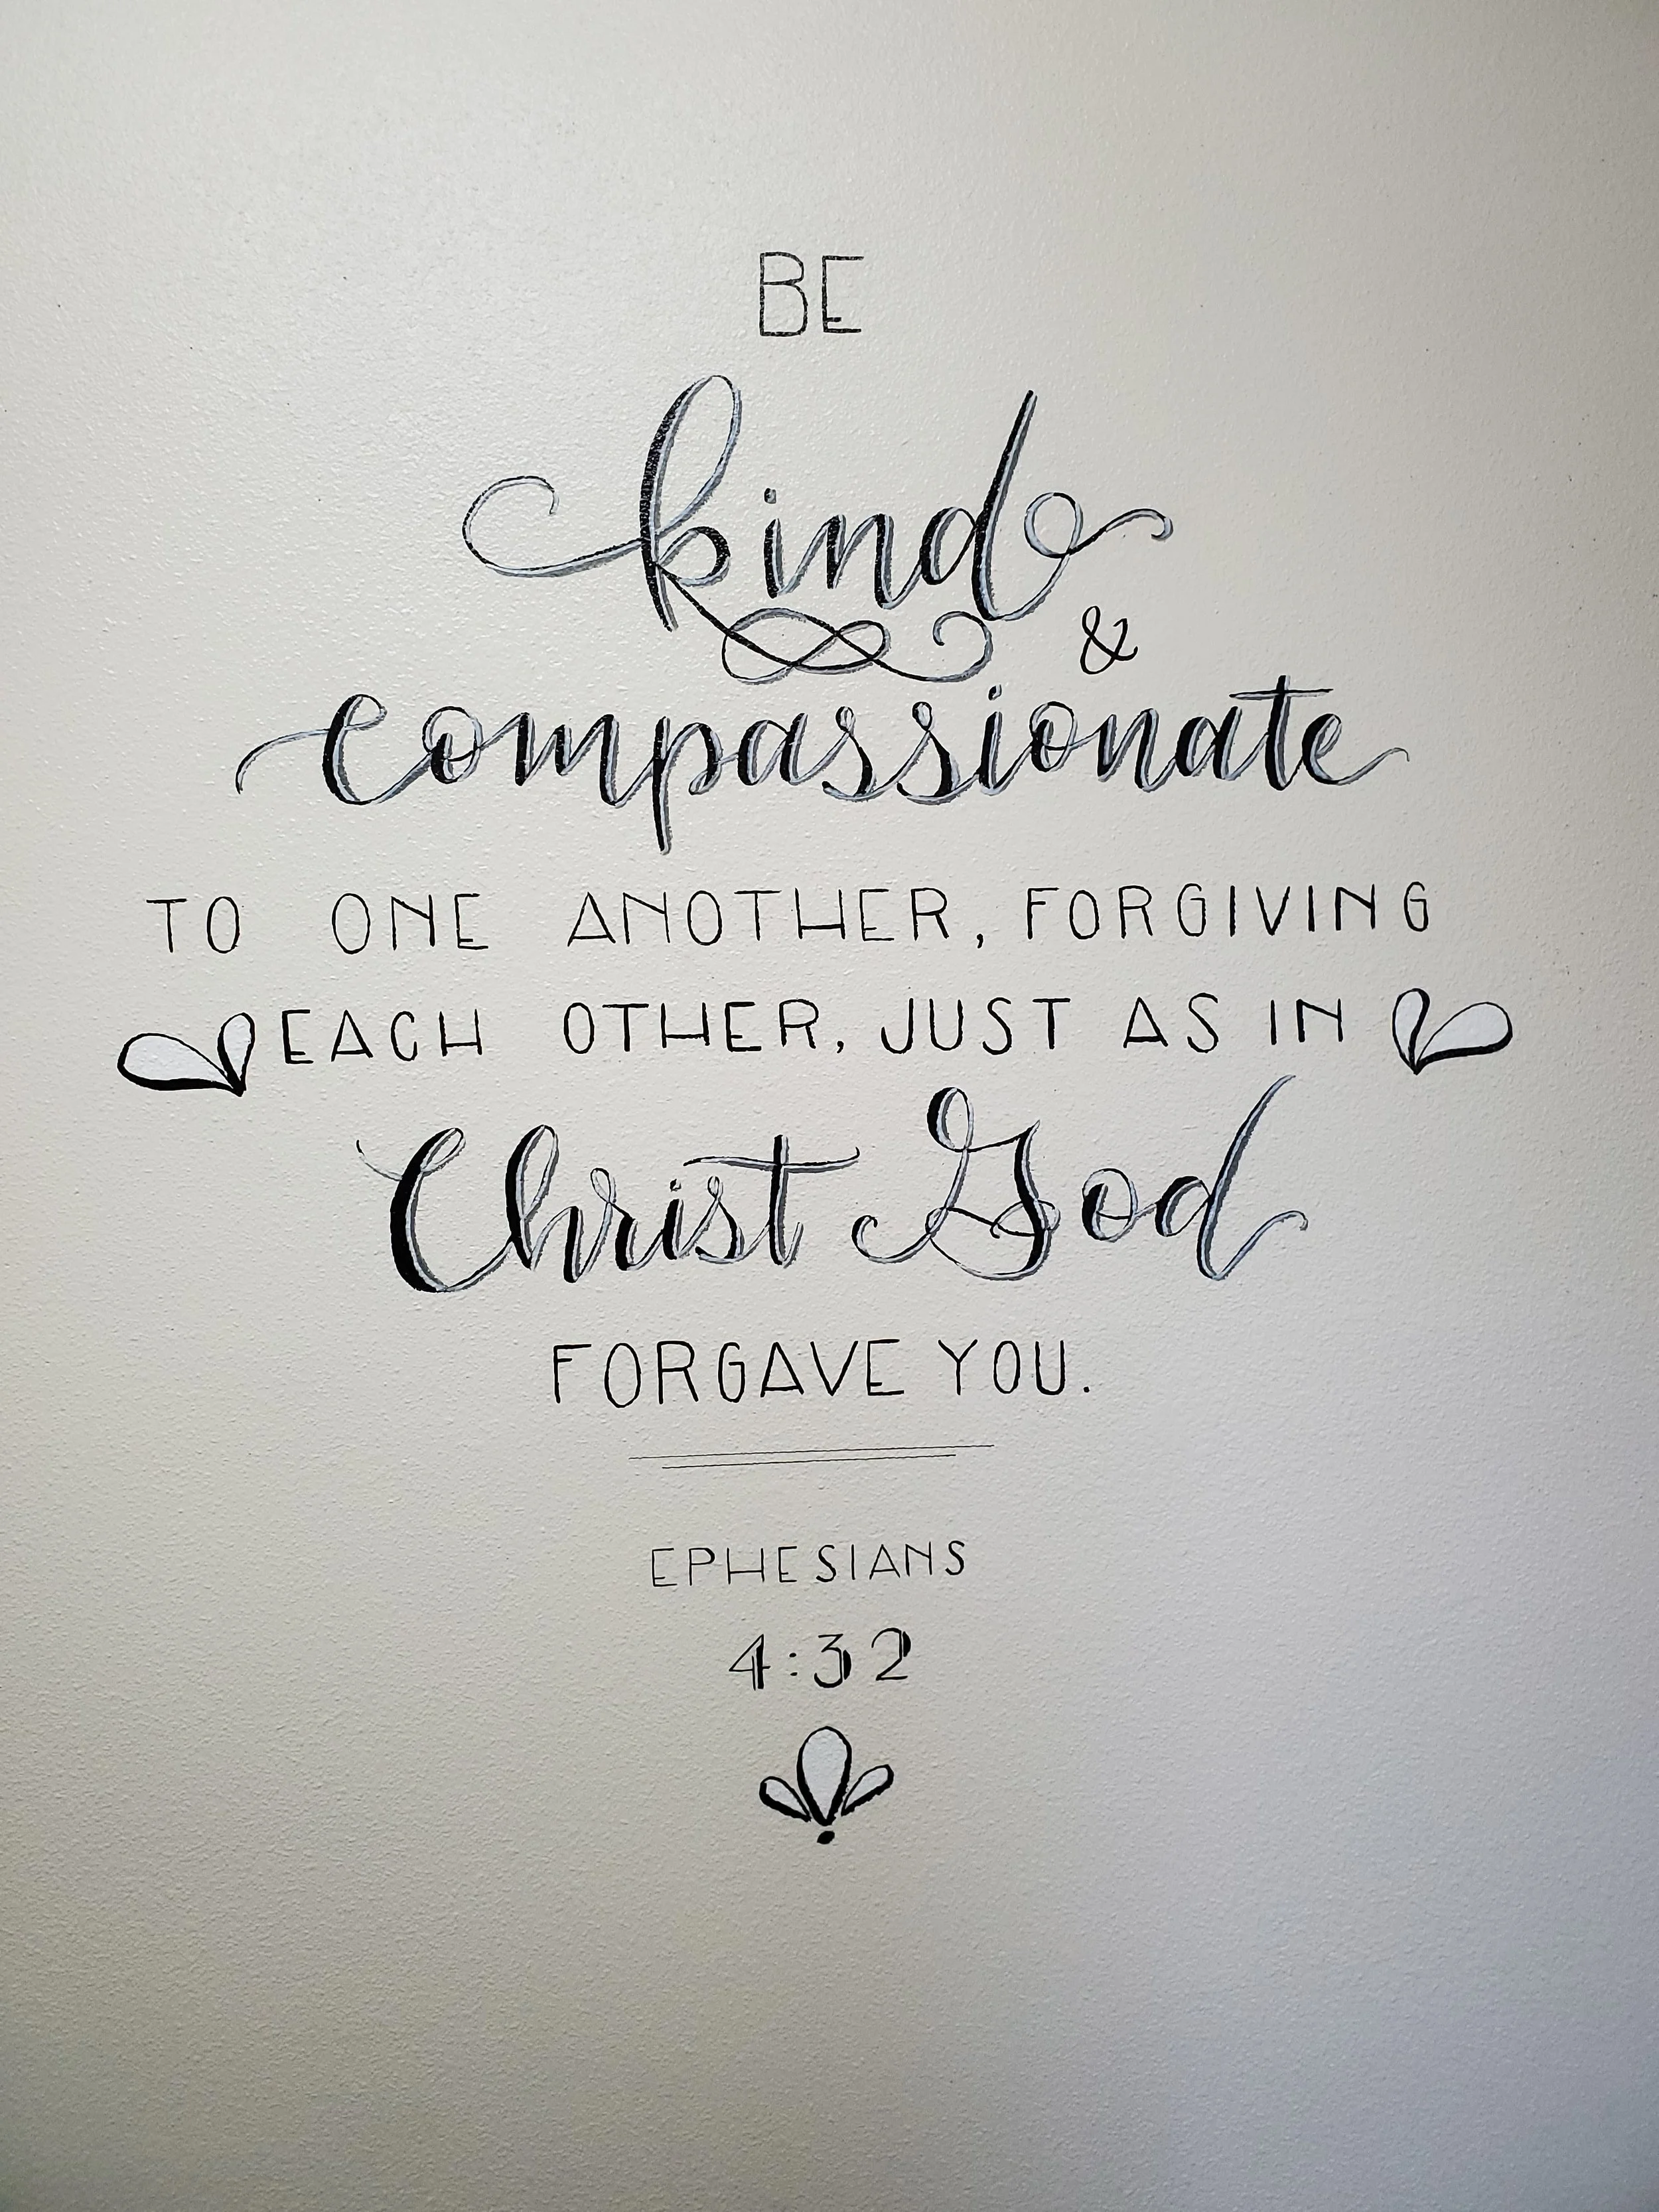 BE
kind
&
compassionate
TO ONE ANOTHER, FORGIVING
EACH OTHER, JUST AS IN
Christ God
FORGAVE YOU.
EPHESIANS
4:32